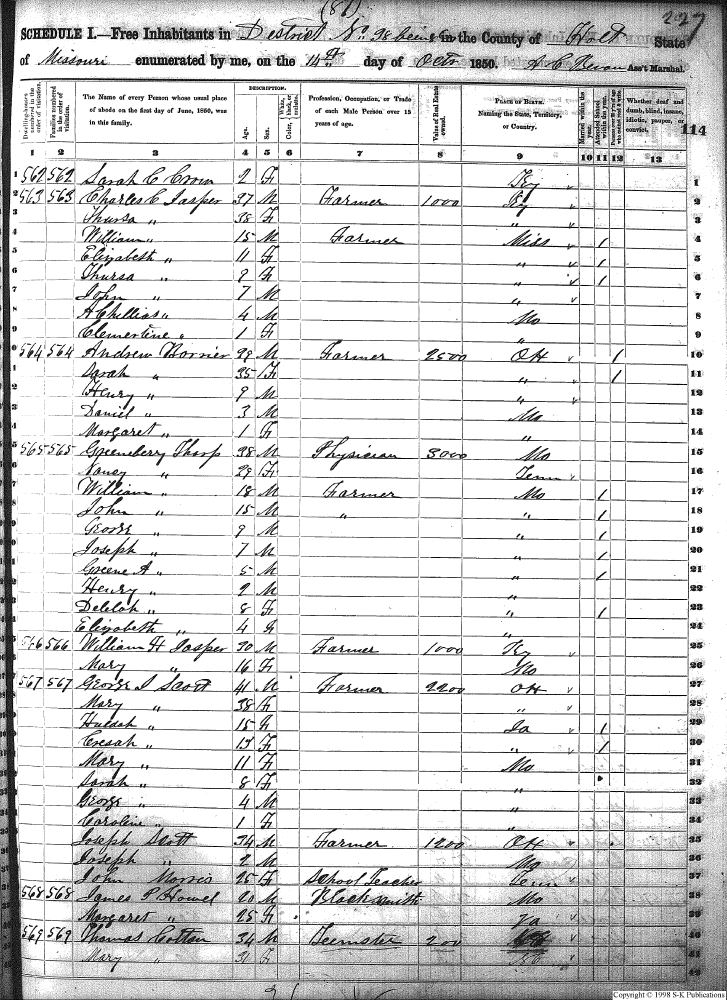 (81)
227
SCHEDULE I.—Free Inhabitants in District No. 38 being in the County of Holt State
of Missouri enumerated by me, on the 14th day of Octr 1850. Ass't Marshal.
114
Dwelling-houses numbered in the order of visitation.
Families numbered in the order of visitation.
The Name of every Person whose usual place of abode on the first day of June, 1850, was in this family.
DESCRIPTION.
Age.
Sex.
Color, White, black, or mulatto.
Profession, Occupation, or Trade of each Male Person over 15 years of age.
Value of Real Estate owned.
PLACE OF BIRTH.
Naming the State, Territory, or Country.
Married within the year.
Attended School within the year.
Whether deaf and dumb, blind, insane, idiotic, pauper, or convict.
1 2 3 4 5 6 7 8 9 10 11 12 13
1 562 562 Sarah C Crow 2 F Ky 1
2 563 563 Charles C Jasper 37 M Farmer 1000 Ky 2
3 Thursa " 38 F " 3
4 William " 15 M Farmer Miss / 4
5 Elizabeth " 11 F " / 5
6 Thursa " 9 F " / 6
7 John " 7 M " 7
8 AChillias " 4 M Mo 8
9 Clementine " 1 F " 9
564 564 Andrew 39 M Farmer 2500 OH / 10
Sarah " 35 F " / 11
Henry " 9 M " 12
Daniel " 3 M Mo 13
Margaret " 1 F " 14
565 565 Greenberry Thorp 38 M Physician 3000 Mo 15
Nancy " 29 F Tenn 16
William " 18 M Farmer Mo / 17
John " 15 M " " / 18
George " 9 M " / 19
Joseph " 7 M " / 20
Greene A " 5 M " / 21
Henry " 2 M " 22
Delilah " 8 F " / 23
Elizabeth " 4 F " 24
566 566 William H Jasper 30 M Farmer 1000 Ky 25
Mary " 16 F Mo 26
567 567 George S Scott 41 M Farmer 2200 OH 27
Mary " 38 F " 28
Huldah " 15 F Ia / 29
13 F " / 30
Mary " 11 F Mo 31
Sarah " 8 F " 32
George " 4 M " 33
Caroline " 1 F " 34
Joseph Scott 34 M Farmer 1200 OH 35
Joseph " 2 M Mo 36
John Morris 25 School Teacher Tenn 37
568 568 James P Howel 20 M Blacksmith Mo 38
Margaret " 25 F Va 39
569 569 Thomas Cotton 34 M Teemster 200 40
Mary " 31 F 41
42
Copyright © 1998 S-K Publications